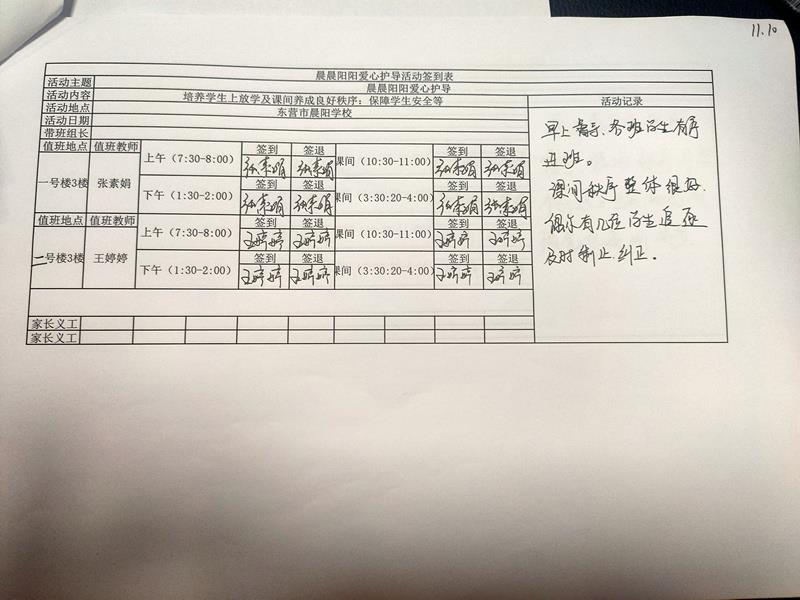 11.10
晨晨阳阳爱心护导活动签到表
活动主题 晨晨阳阳爱心护导
活动内容 培养学生上放学及课间养成良好秩序；保障学生安全等 活动记录
活动地点 东营市晨阳学校
活动日期
带班组长
值班地点 值班教师 签到 签退 签到 签退
一号楼3楼 张素娟 上午（7:30-8:00） 张素娟 张素娟 课间（10:30-11:00） 张素娟 张素娟
签到 签退 签到 签退
下午（1:30-2:00） 张素娟 张素娟 课间（3:30:20-4:00） 张素娟 张素娟
值班地点 值班教师 签到 签退 签到 签退
二号楼3楼 王婷婷 上午（7:30-8:00） 王婷婷 王婷婷 课间（10:30-11:00） 王婷婷 王婷婷
签到 签退 签到 签退
下午（1:30-2:00） 王婷婷 王婷婷 课间（3:30:20-4:00） 王婷婷 王婷婷
家长义工
家长义工
早上、各班学生有序
进班。
课间秩序整体很好.
偶尔有几位学生追逐
及时制止.纠正。